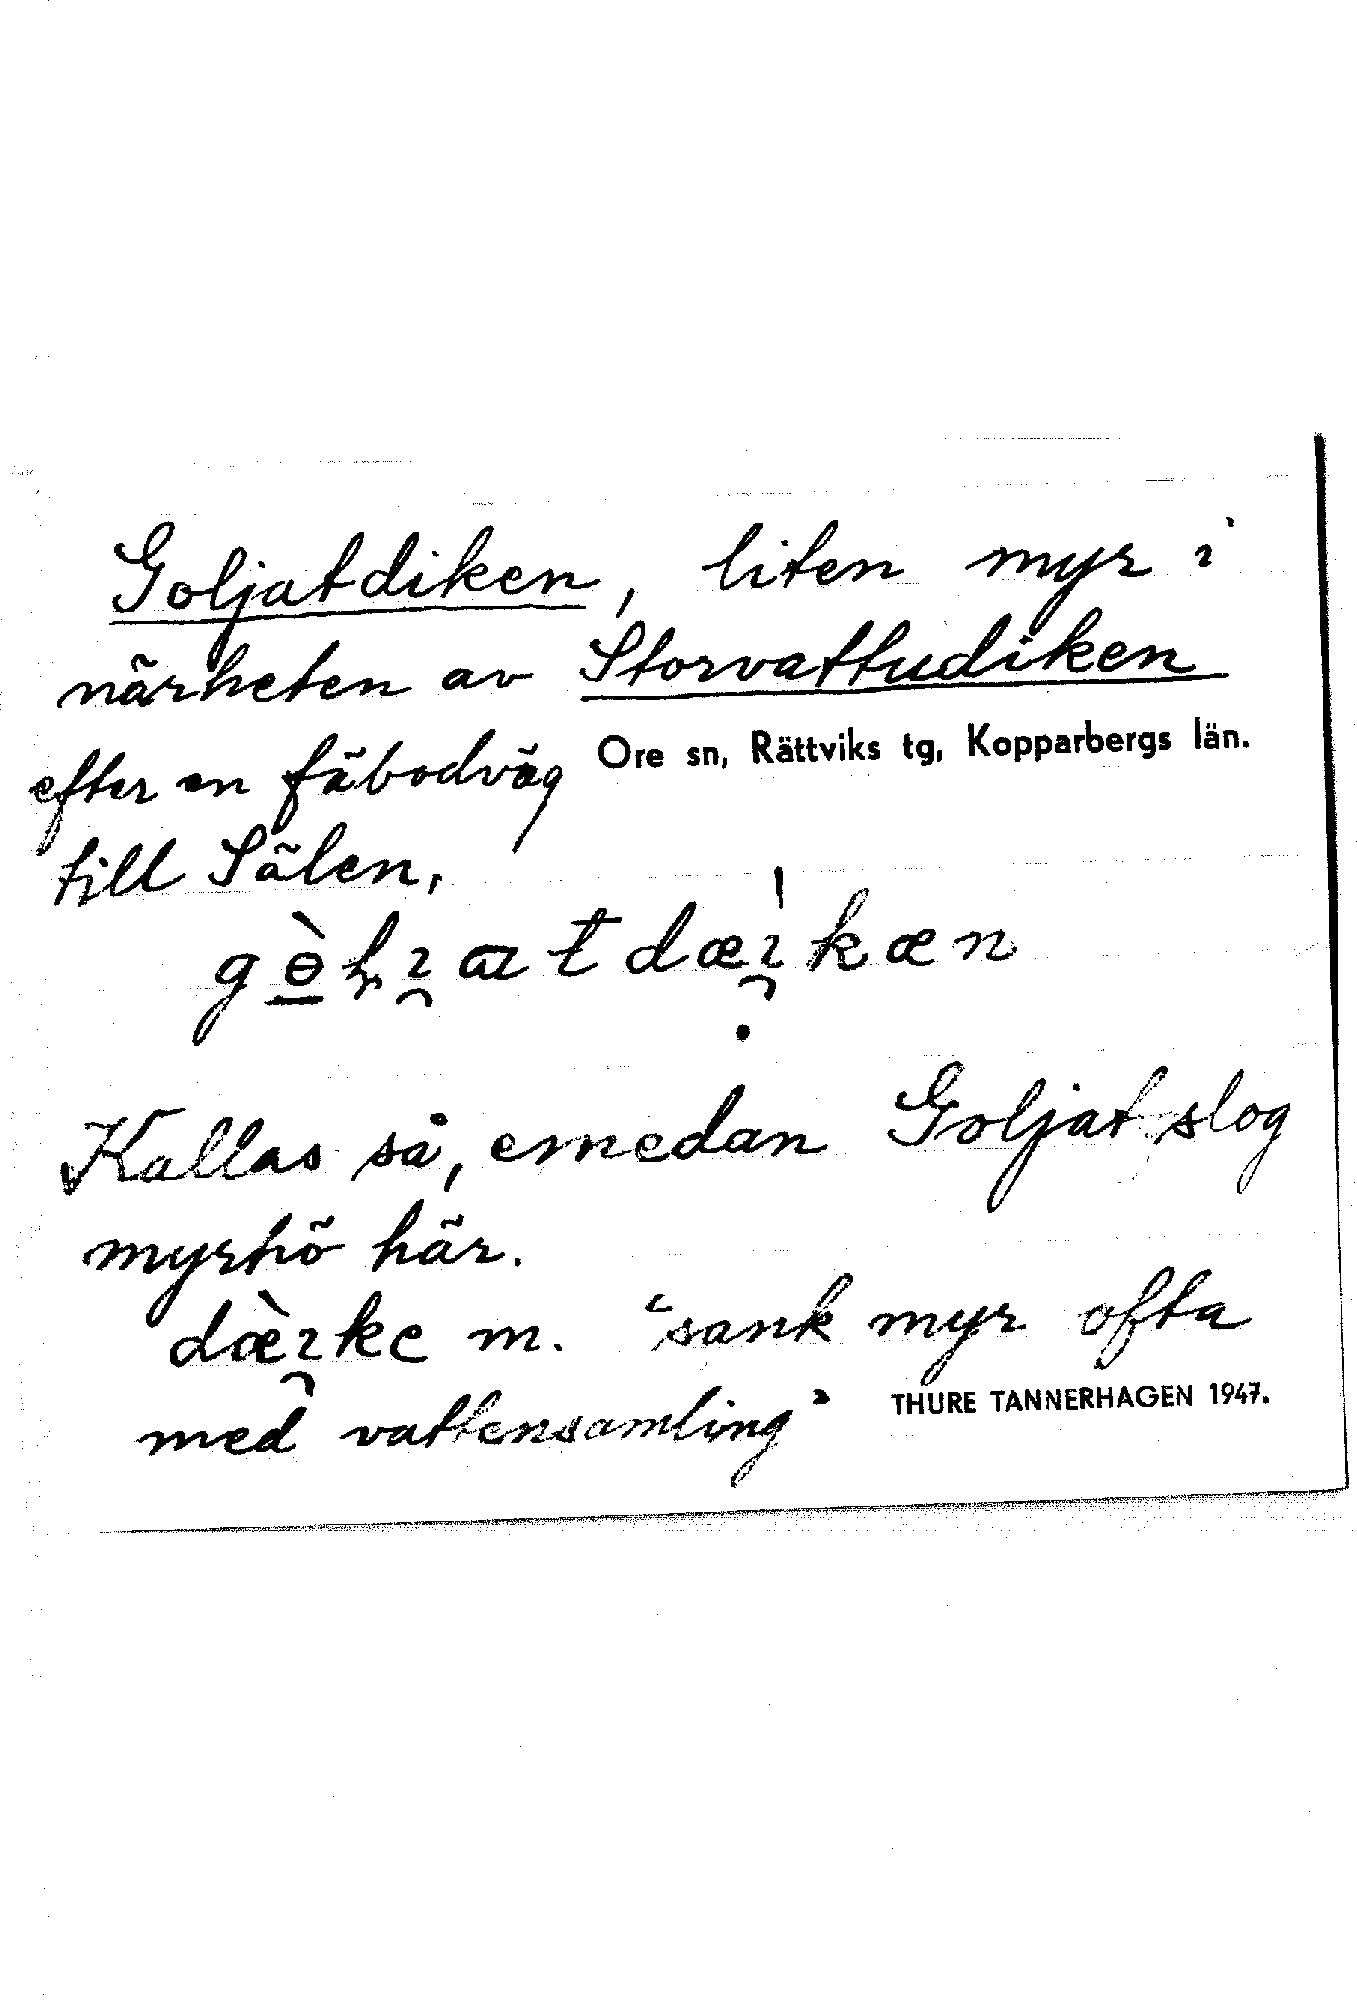 Goljatdiken, liten myr i
närheten av Storvattudiken
efter en fäbodväg
Ore sn, Rättviks tg, Kopparbergs län.
till Sälen,
Kallas så, emedan Goljat slog
myrhö här.
m. "sank myr ofta
med vattensamling"
THURE TANNERHAGEN 1947.